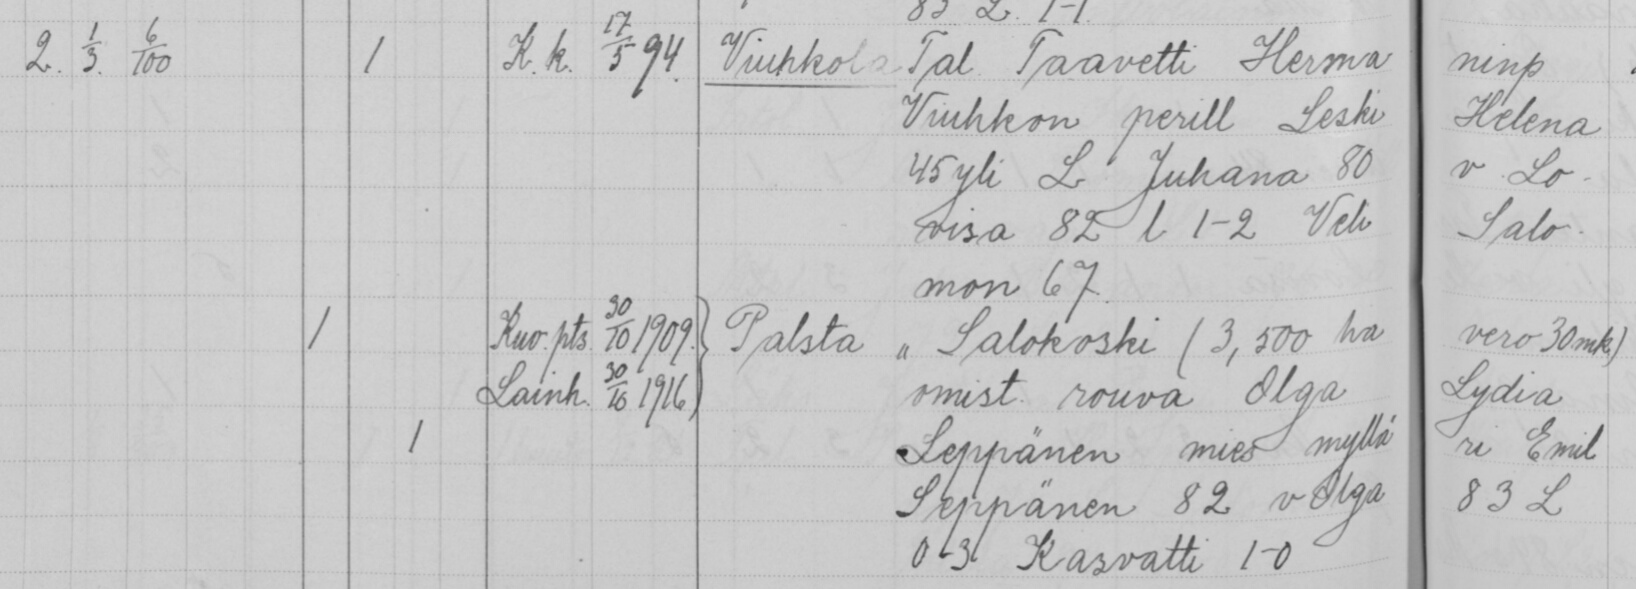 83 L 1-1
2. 1/3. 6/100 1 K. k. 17/5 94. Viuhkola Tal. Taavetti Herma ninp
Viuhkon perill Leski Helena
45 yli L Juhana 80 v Lo-
visa 82 l 1-2 Veli Salo-
mon 67.
1 Kuv. pts. 30/10 1909. } Palsta „ Salokoski (3,500 ha vero 30 mk)
Lainh. 30/10 1916 omist. rouva Olga Lydia
1 Seppänen mies myllä ri Emil
Seppänen 82 v Olga 83 L
0-3 Kasvatti 1-0